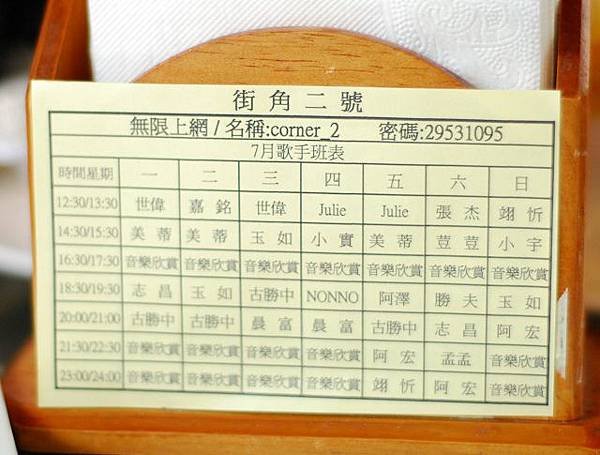 街角二號
無限上網/名稱:corner_2 密碼:29531095
7月歌手班表
時間星期 一 二 三 四 五 六 日
12:30/13:30 世偉 嘉銘 世偉 Julie Julie 張杰 翊忻
14:30/15:30 美蒂 美蒂 玉如 小實 美蒂 荳荳 小宇
16:30/17:30 音樂欣賞 音樂欣賞 音樂欣賞 音樂欣賞 音樂欣賞 音樂欣賞 音樂欣賞
18:30/19:30 志昌 玉如 古勝中 NONNO 阿澤 勝夫 玉如
20:00/21:00 古勝中 古勝中 晨富 晨富 古勝中 志昌 阿宏
21:30/22:30 音樂欣賞 音樂欣賞 音樂欣賞 音樂欣賞 阿宏 孟孟 音樂欣賞
23:00/24:00 音樂欣賞 音樂欣賞 音樂欣賞 音樂欣賞 翊忻 阿宏 音樂欣賞